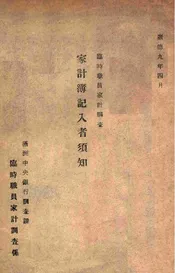 康徳九年四月
臨時職員家計調査
家計簿記入者須知
満洲中央銀行調査課
臨時職員家計調査係